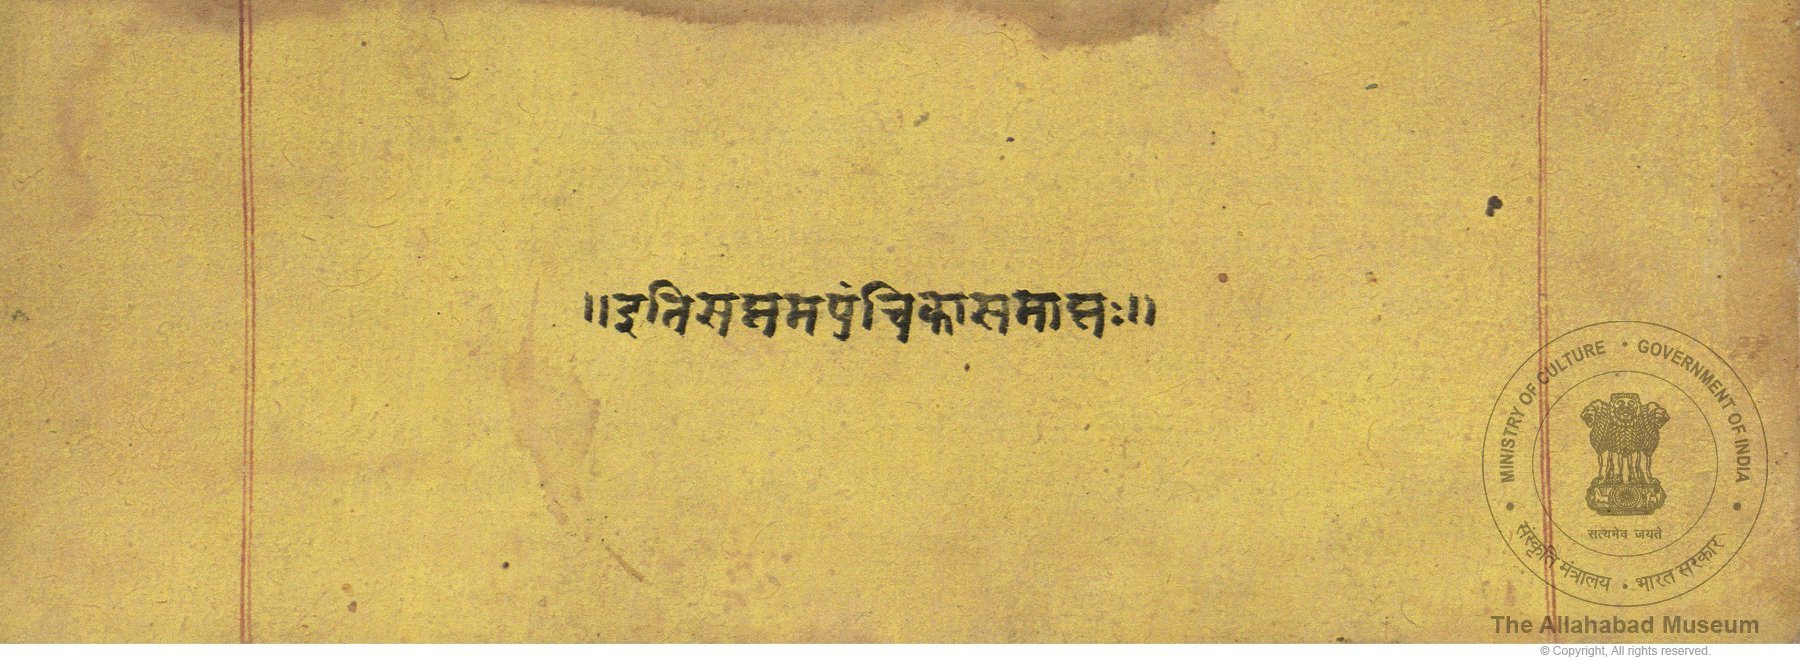 ॥इतिसप्तमपंचिकासमाप्तः॥
MINISTRY OF CULTURE • GOVERNMENT OF INDIA
सत्यमेव जयते
संस्कृति मंत्रालय • भारत सरकार
The Allahabad Museum
© Copyright, All rights reserved.